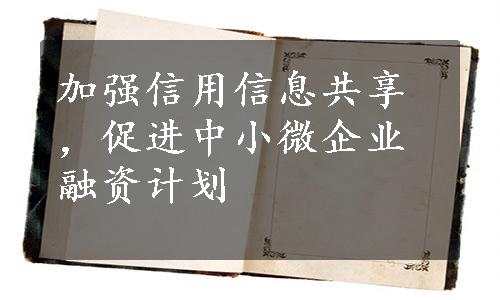 加强信用信息共享
，促进中小微企业
融资计划